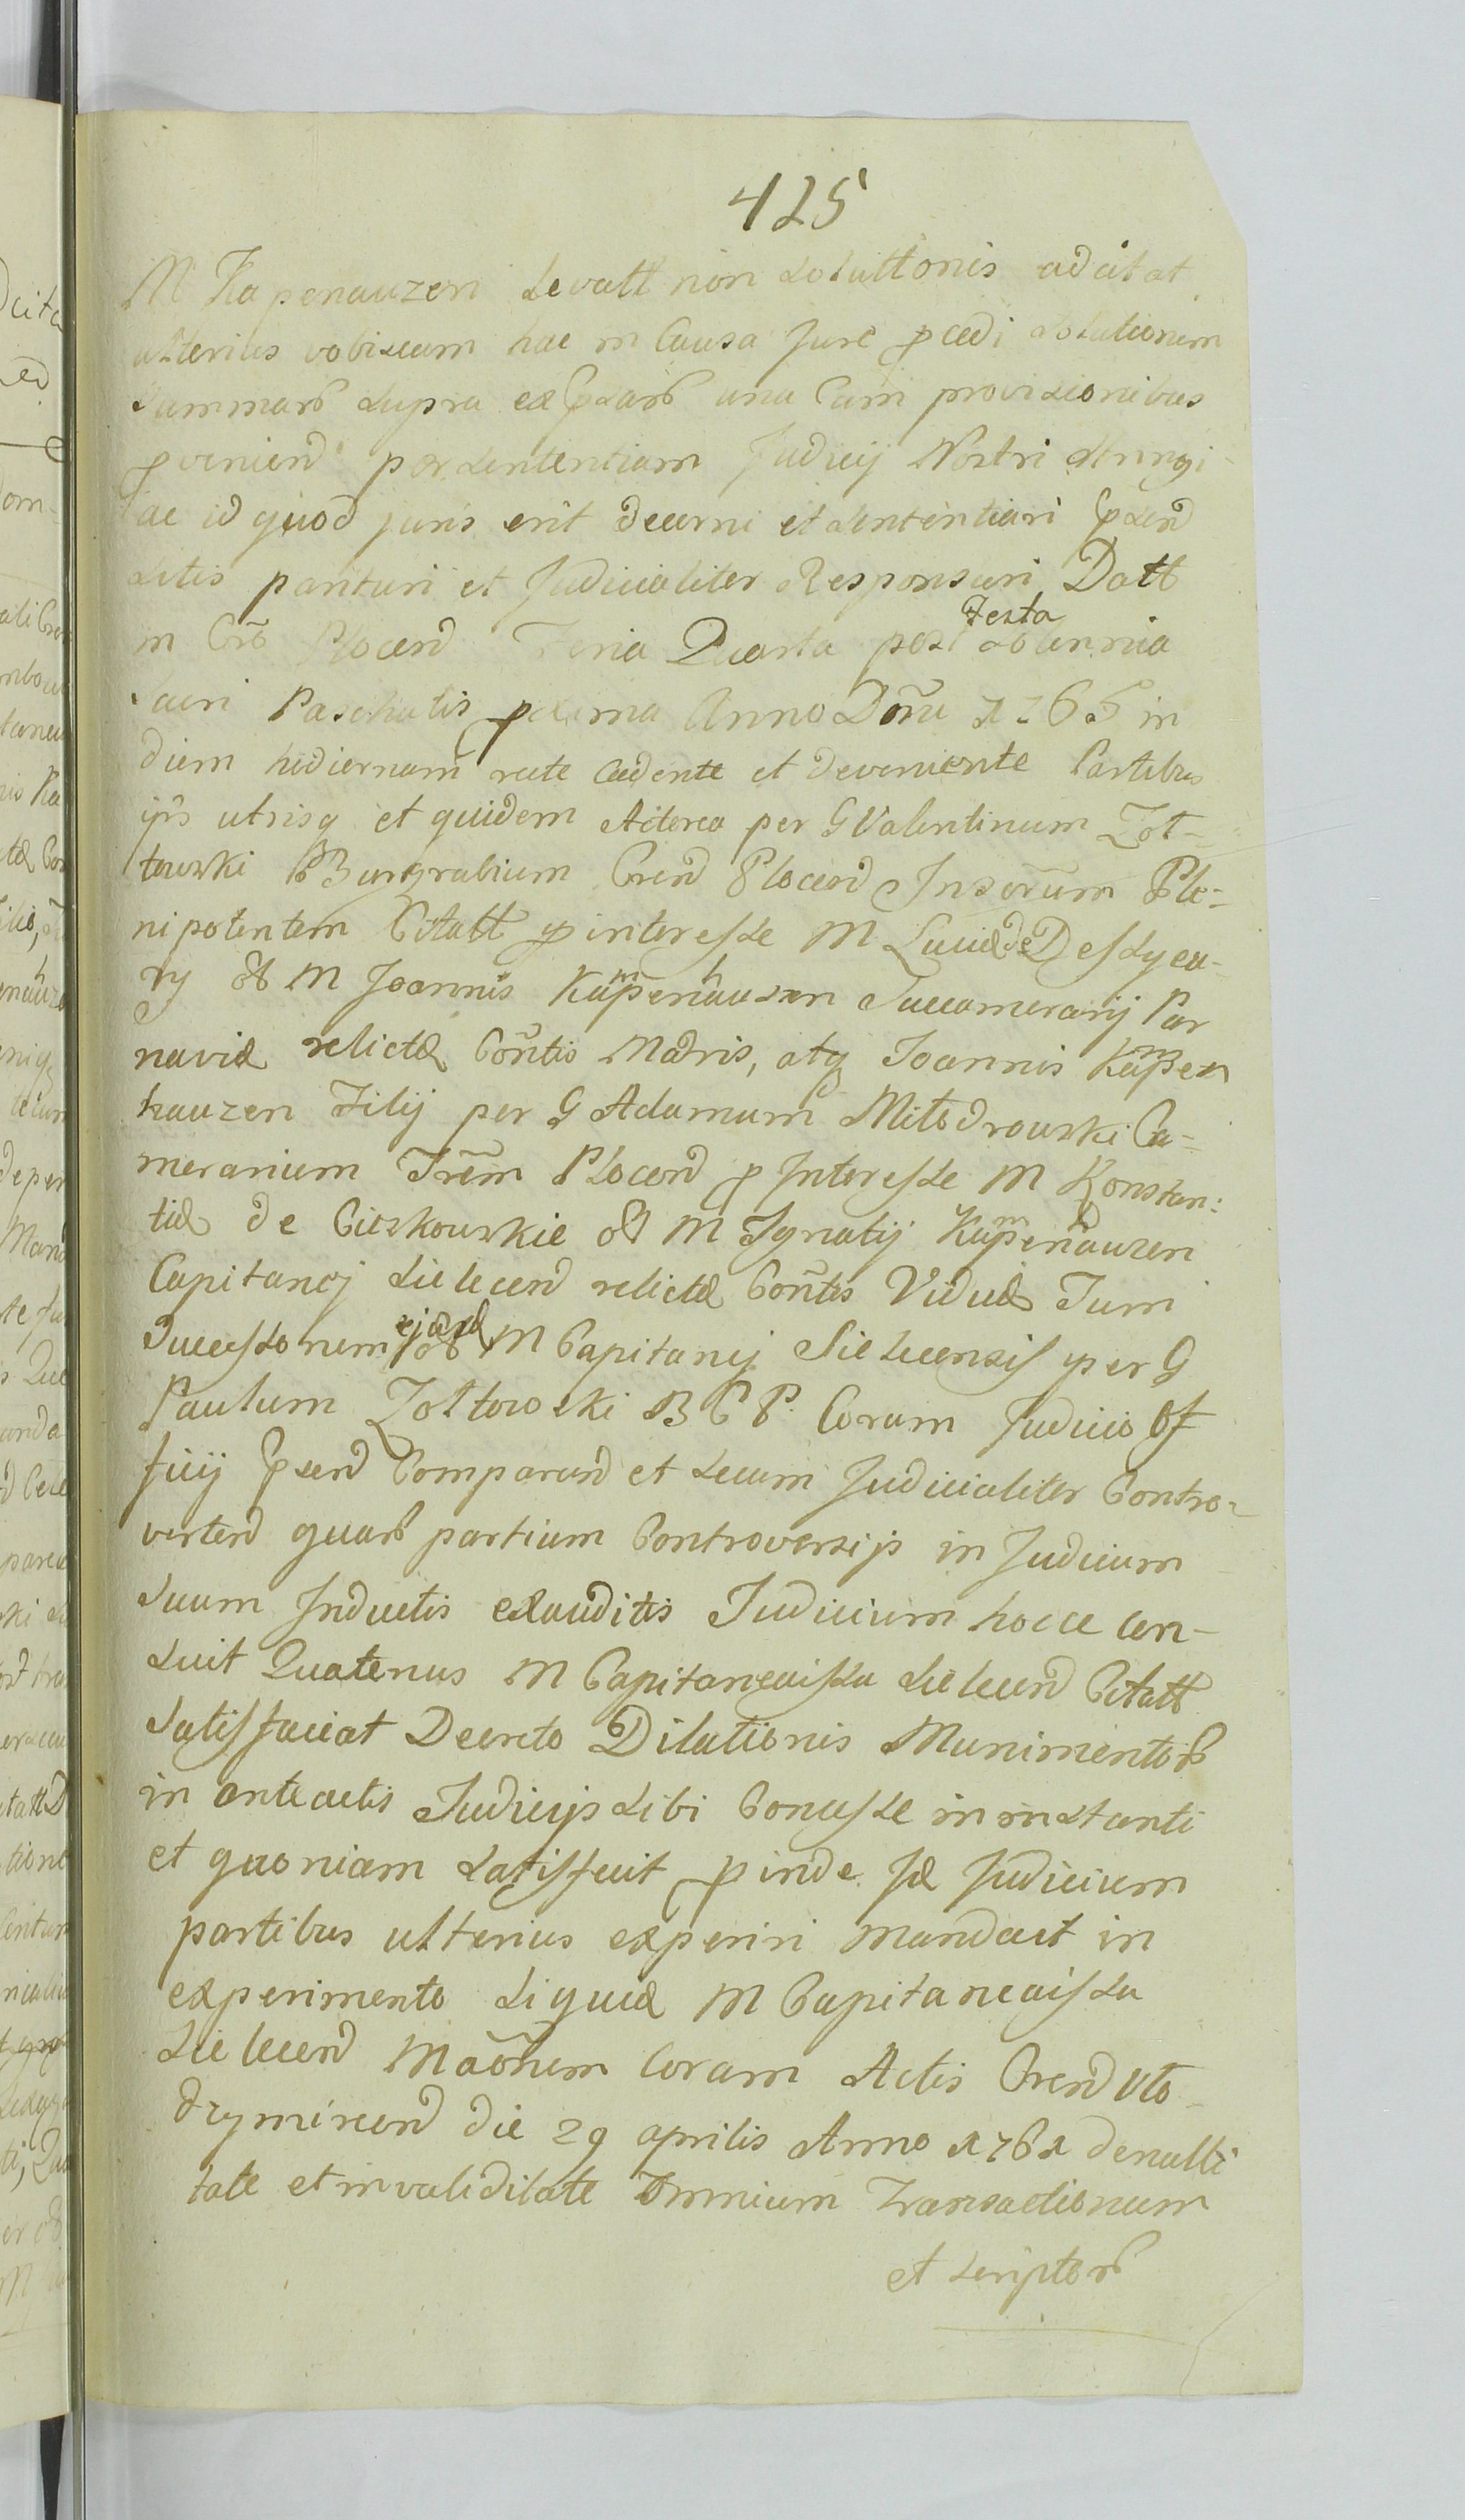 425
M Kapenauzen Levatt non Solutionis adcitat
ulterius vobiscum hac in Causa Jure pcedi Solutionem
Summarb Supra exPSarb una Cum provisionibus
pveniend per Sententiam Judicij Nostri
ac id quod juris erit decerni et Sententiari PSend
Litis parituri et Judicialiter Responsuri, Datt
in Crō Plocend Feria Quarta post Festa Solennia
Sacri Paschatis pxima Anno Dōni 1765 in
diem hodiernam recte Cadente et deveniente Partibus
ijs utrisq et quidem Actorea per G Valentinum Zot-
towski Burgrabium Crend Plocend Inscrum Ple-
nipotentem Citatt p interesse M Luciæ de
ry Ol M Joannis Kampenhausen Succamerarij Par
naviæ relictæ Cōntis Matris, atq Joannis Kampen
hauzen Filij per G Adamum Mitodrowski Ca-
merarium Trēm Plocend p Interesse M Konstan:
tiæ de Cieszkowskie Ol M Ignatij Kampenhauzen
Capitanej Sielecend relictæ Cōntis Viduæ Tum
Successorum ejusd Ol M Capitanej Sielecensis per G
Paulum Zottowski B C P. Coram Judicio Of
ficij PSend Comparend et Secum Judicialiter Contro-
vertend quarb partium Controversijs in Judicium
Suum Inductis exauditis Judicium hocce Cen-
Suit Quatenus M Capitaneaissa Sielecend Citatt
Satisfaciat Decreto Dilationis Munimentorb
in anteactis Judicijs Sibi Concesse in instanti
et quoniam Satisfecit pinde Id Judicium
partibus ulterius experiri Mandavit in
experimento Siquid M Capitaneaissa
Sielecend Māōnem Coram Actis Crend Vlo
drymirend die 29 aprilis Anno 1761 de nulli
tate et invaliditate Omnium Transactionum
et Scriptorb